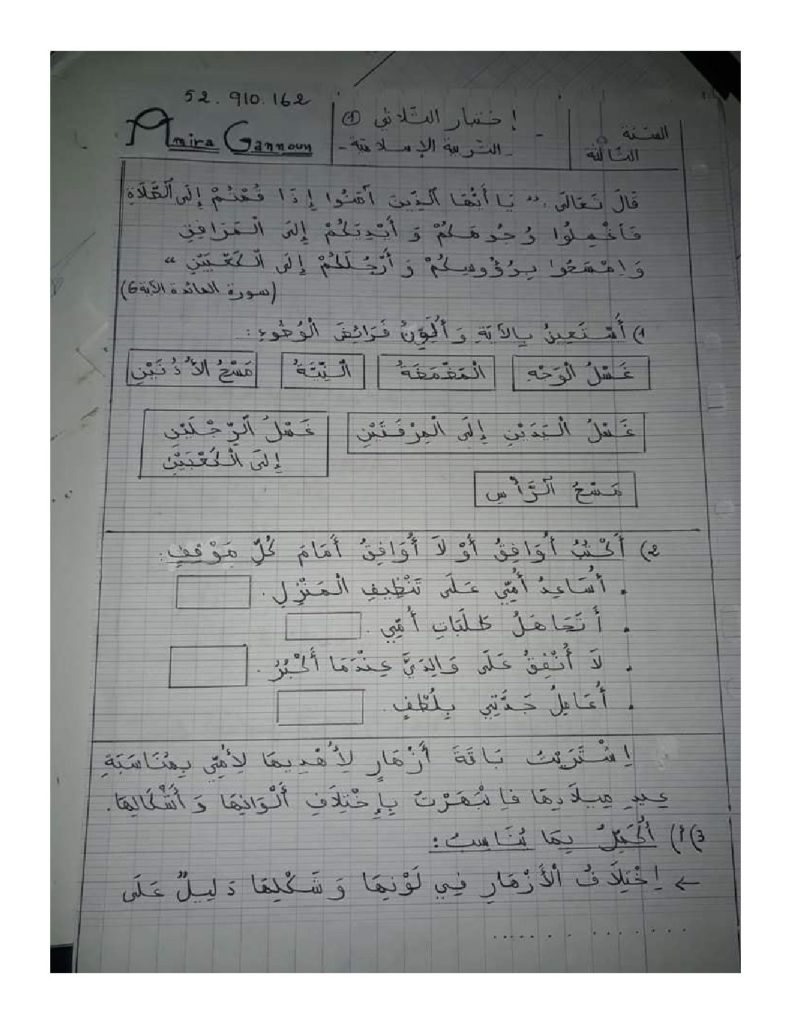 52.910.162
Amira Gannoun
إختبار الثلاثي ①
- التربية الإسلامية -
السنة
الثالثة
قَالَ تَعَالَى : " يَا أَيُّهَا الَّذِينَ آمَنُوا إِذَا قُمْتُمْ إِلَى الصَّلَاةِ
فَاغْسِلُوا وُجُوهَكُمْ وَ أَيْدِيَكُمْ إِلَى الْمَرَافِقِ
وَ امْسَحُوا بِرُؤُوسِكُمْ وَ أَرْجُلَكُمْ إِلَى الْكَعْبَيْنِ "
(سورة المائدة الآية 6)
1) أَسْتَعِينُ بِالآيَةِ وَ أُلَوِّنُ فَرَائِضَ الْوُضُوءِ :
غَسْلُ الْوَجْهِ
الْمَضْمَضَةُ
النِّيَّةُ
مَسْحُ الأُذُنَيْنِ
غَسْلُ الْيَدَيْنِ إِلَى الْمِرْفَقَيْنِ
غَسْلُ الرِّجْلَيْنِ
إِلَى الْكَعْبَيْنِ
مَسْحُ الرَّأْسِ
2) أَكْتُبُ أُوَافِقُ أَوْ لَا أُوَافِقُ أَمَامَ كُلِّ مَوْقِفٍ :
. أُسَاعِدُ أُمِّي عَلَى تَنْظِيفِ الْمَنْزِلِ .
. أَتَجَاهَلُ طَلَبَاتِ أُمِّي .
. لَا أُنْفِقُ عَلَى وَالِدَيَّ عِنْدَمَا أَكْبُرُ .
. أُعَامِلُ جَدَّتِي بِلُطْفٍ .
اِشْتَرَيْتُ بَاقَةَ أَزْهَارٍ لِأُهْدِيهَا لِأُمِّي بِمُنَاسَبَةِ
عِيدِ مِيلَادِهَا فَانْبَهَرْتُ بِاِخْتِلَافِ أَلْوَانِهَا وَ أَشْكَالِهَا.
3) أ) أُكْمِلُ بِمَا يُنَاسِبُ :
← اِخْتِلَافُ الْأَزْهَارِ فِي لَوْنِهَا وَ شَكْلِهَا دَلِيلٌ عَلَى
.............